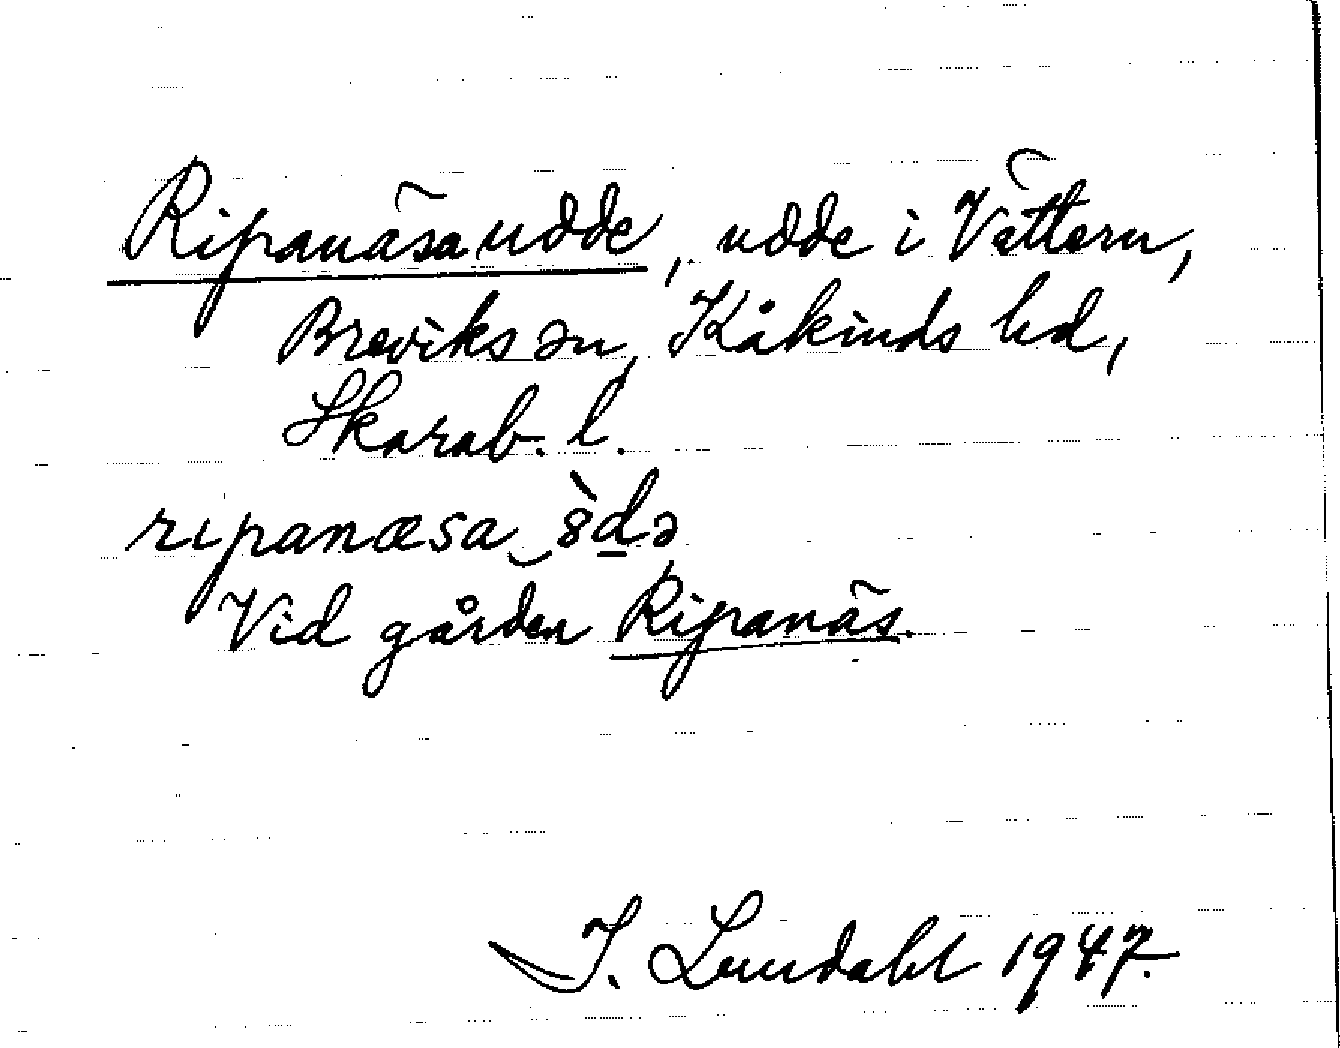 Ripanäsaudde, udde i Vättern,
Breviks sn, Kåkinds hd,
Skarab. l.
ripanæsa‿ùdə
Vid gården Ripanäs.
I. Lundahl 1947.